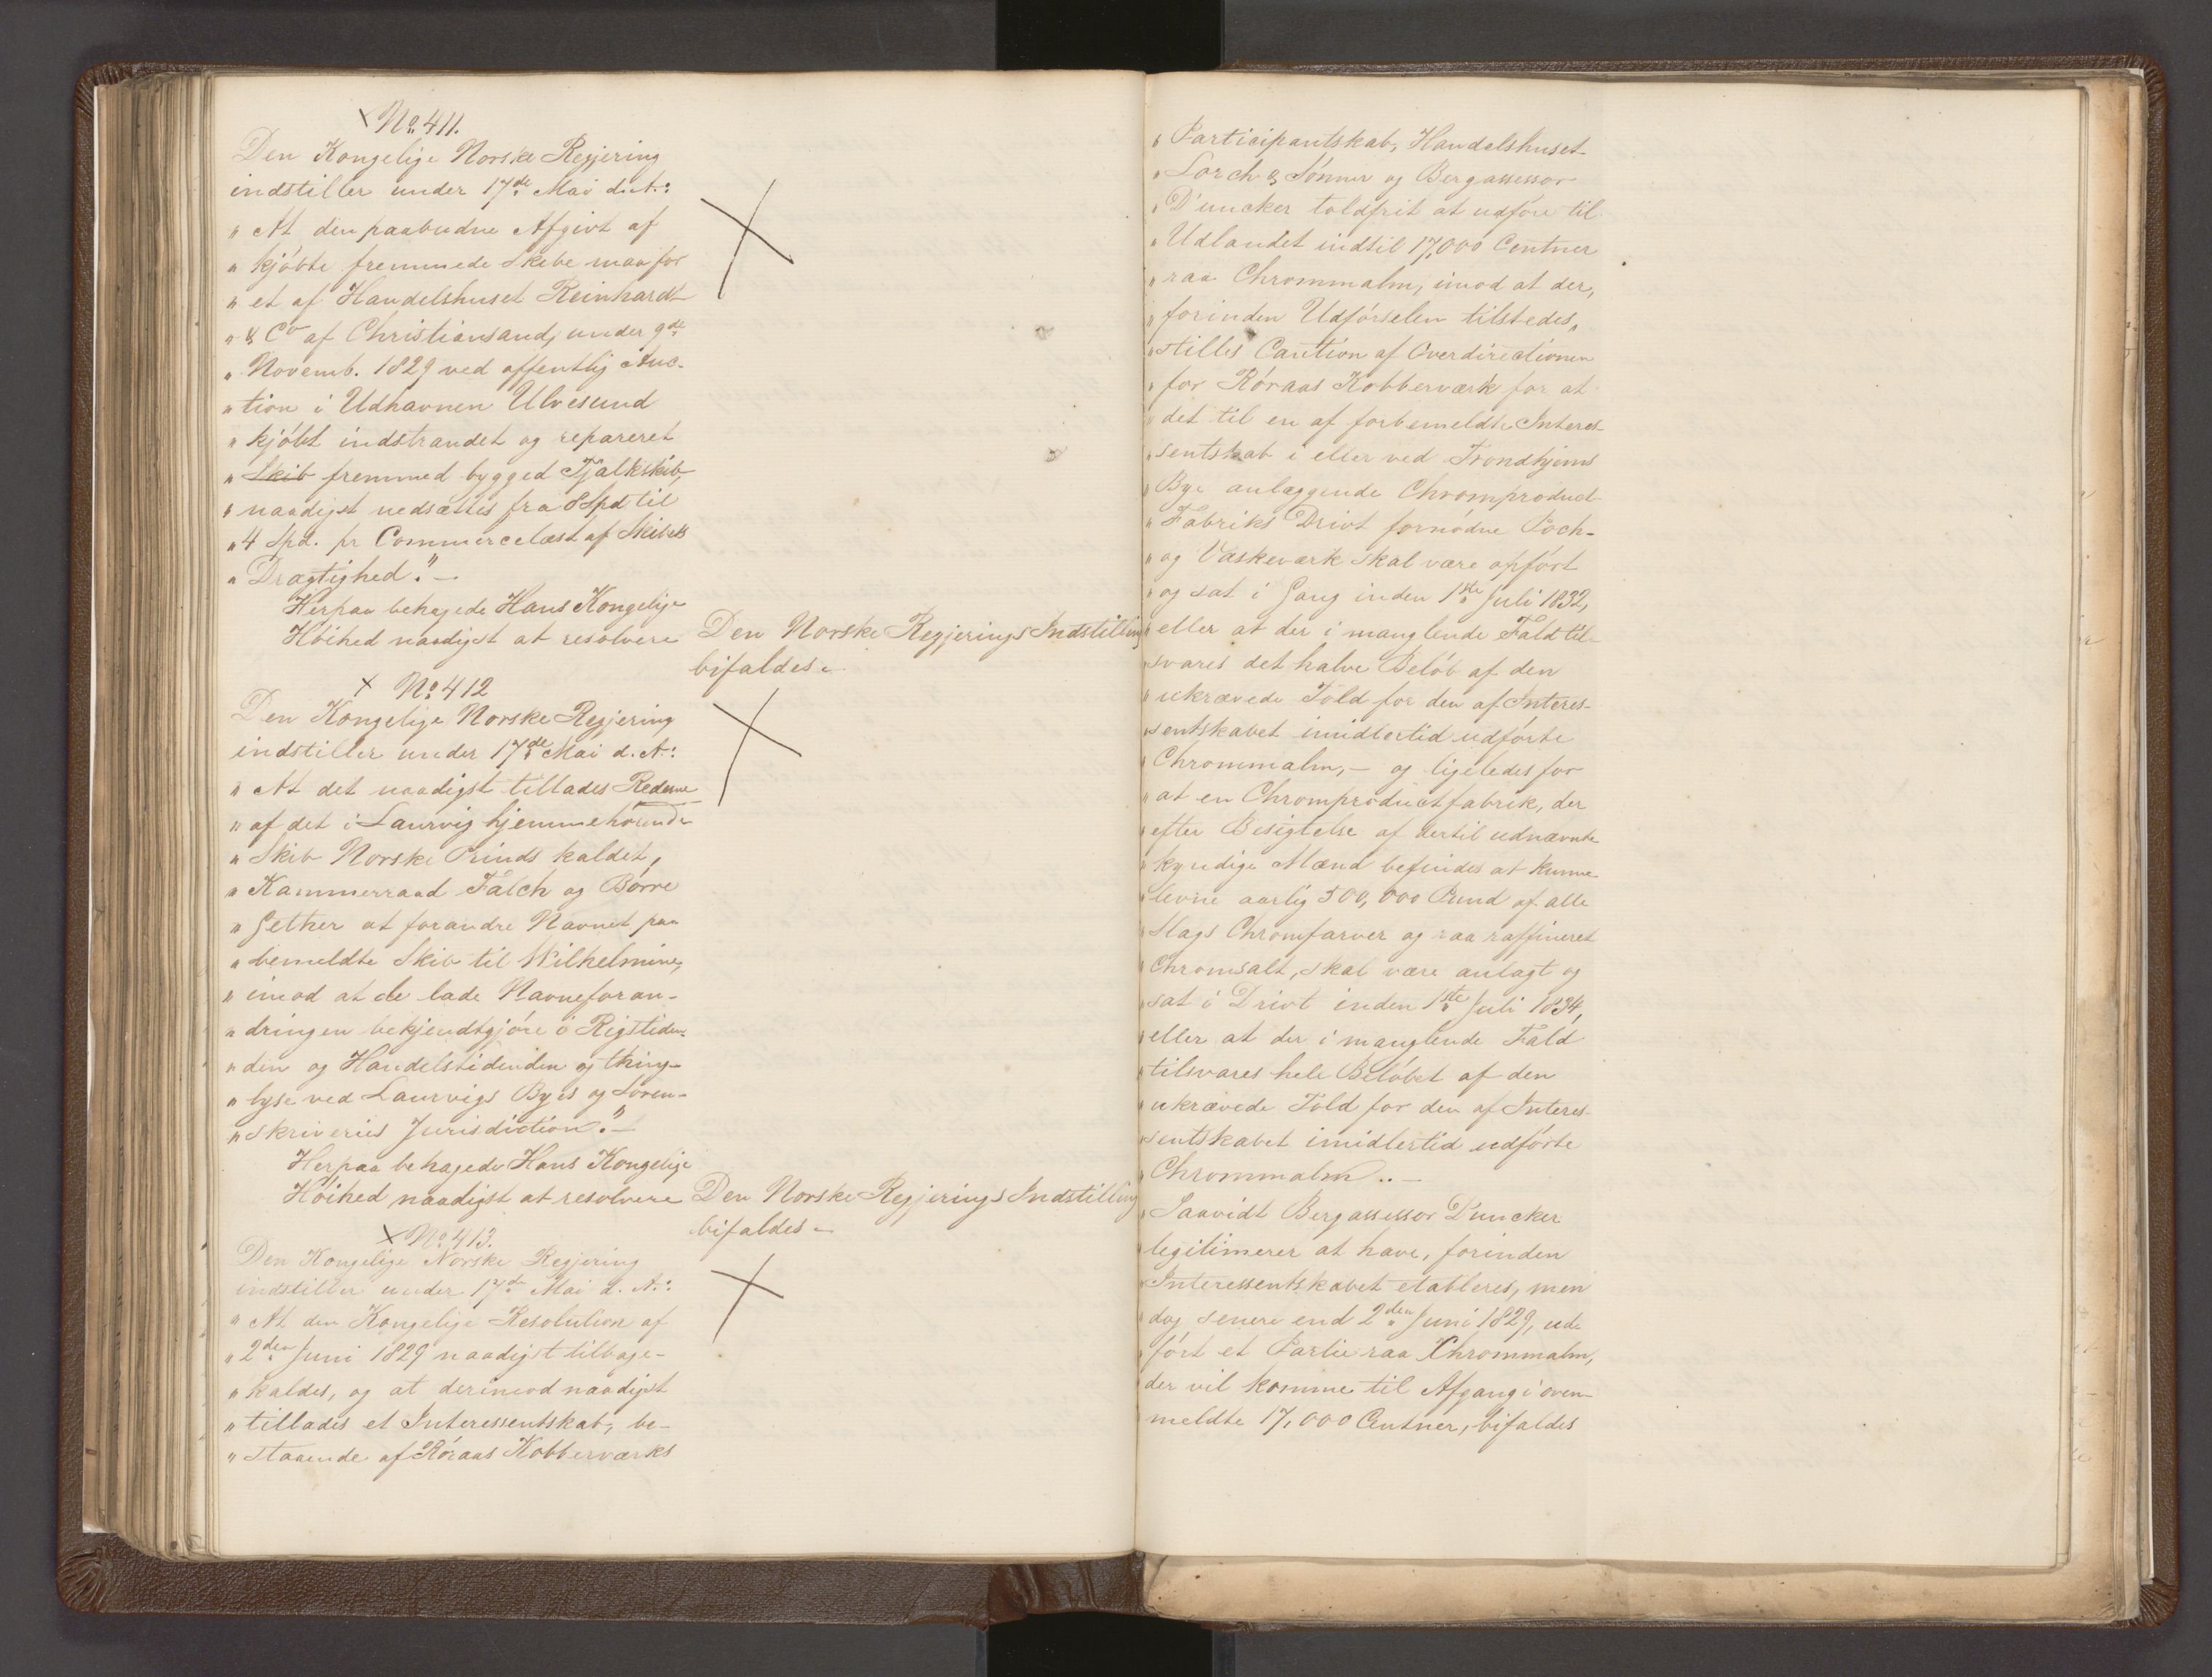 No. 411.
Den Kongelige Norske Regjering
indstiller under 17de Mai d. A.:
" At den paabudne Afgivt af
" kjöbte fremmede Skibe maa for
" et af Handelshuset Reinhardt
" & Co af Christiansand, under 9de
" Novemb. 1829 ved offentlig Auc-
" tion i Udhavnen Ulvesund
" kjöbt indstrandet og repareret
" Skib fremmed bygged Tjalkskib,
" naadigst nedsættes fra 8 Spd til
" 4 Spd. pr Commercelæst af Skibets
" Drægtighed." —
Herpaa behagede Hans Kongelige
Höihed naadigst at resolvere
Den Norske Regjerings Indstilling
bifaldes.
No. 412
Den Kongelige Norske Regjering
indstiller under 17de Mai d. A.:
" At det naadigst tillades Rederne
" af det i Laurvig hjemmehörende
" Skib Norske Prinds kaldet,
" Kammerraad Falch og Börre
" Gether at forandre Navnet paa
" bemeldte Skib til Wilhelmine,
" imod at de lade Navneforan-
" dringen bekjendtgjöre i Rigstiden-
" den og Handelstidenden og thing-
" lyse ved Laurvigs Byes og Soren-
" skriveries Jurisdiction." —
Herpaa behagede Hans Kongelige
Höihed naadigst at resolvere
Den Norske Regjerings Indstilling
bifaldes.
No. 413.
Den Kongelige Norske Regjering
indstiller under 17de Mai d. A.:
" At den Kongelige Resolution af
" 2den Juni 1829 naadigst tilbage-
" kaldes, og at derimod naadigst
" tillades et Interessentskab, be-
" staaende af Röraas Kobberværks
" Participantskab, Handelshuset
" Lorch & Sönner og Bergassessor
" D'uncker toldfrit at udföre til
" Udlandet indtil 17,000 Centner
" raa Chrommalm, imod at der,
" forinden Udförselen tilstedes,
" stilles Caution af Overdirectionen
" for Röraas Kobberværk for at
" det til en af forbemeldte Interes-
" sentskab i eller ved Trondhjems
" Bye anlæggende Chromproduct-
" Fabriks Drivt fornödne Poch-
" og Vaskeværk skal være opfört
" og sat i Gang inden 1ste Juli 1832,
" eller at der i manglende Fald til-
" svares det halve Belöb af den
" ukrævede Told for den af Interes-
" sentskabet imidlertid udförte
" Chrommalm, — og ligeledes for
" at en Chromproductfabrik, der
" efter Besigtelse af dertil udnævnte
" kyndige Mænd befindes at kunne
" levere aarlig 500,000 Pund af alle
" Slags Chromfarver og raa raffineret
" Chromsalt, skal være anlagt og
" sat i Drivt inden 1ste Juli 1834,
" eller at der i manglende Fald
" tilsvares hele Belöbet af den
" ukrævede Told for den af Interes-
" sentskabet imidlertid udförte
" Chrommalm.. —
" Saavidt Bergassessor D'uncker
" legitimerer at have, forinden
" Interessentskabet etableres, men
" dog senere end 2den Juni 1829, ud-
" fört et Partie raa Chrommalm,
" der vil komme til Afgang i oven-
" meldte 17,000 Centner, bifaldes